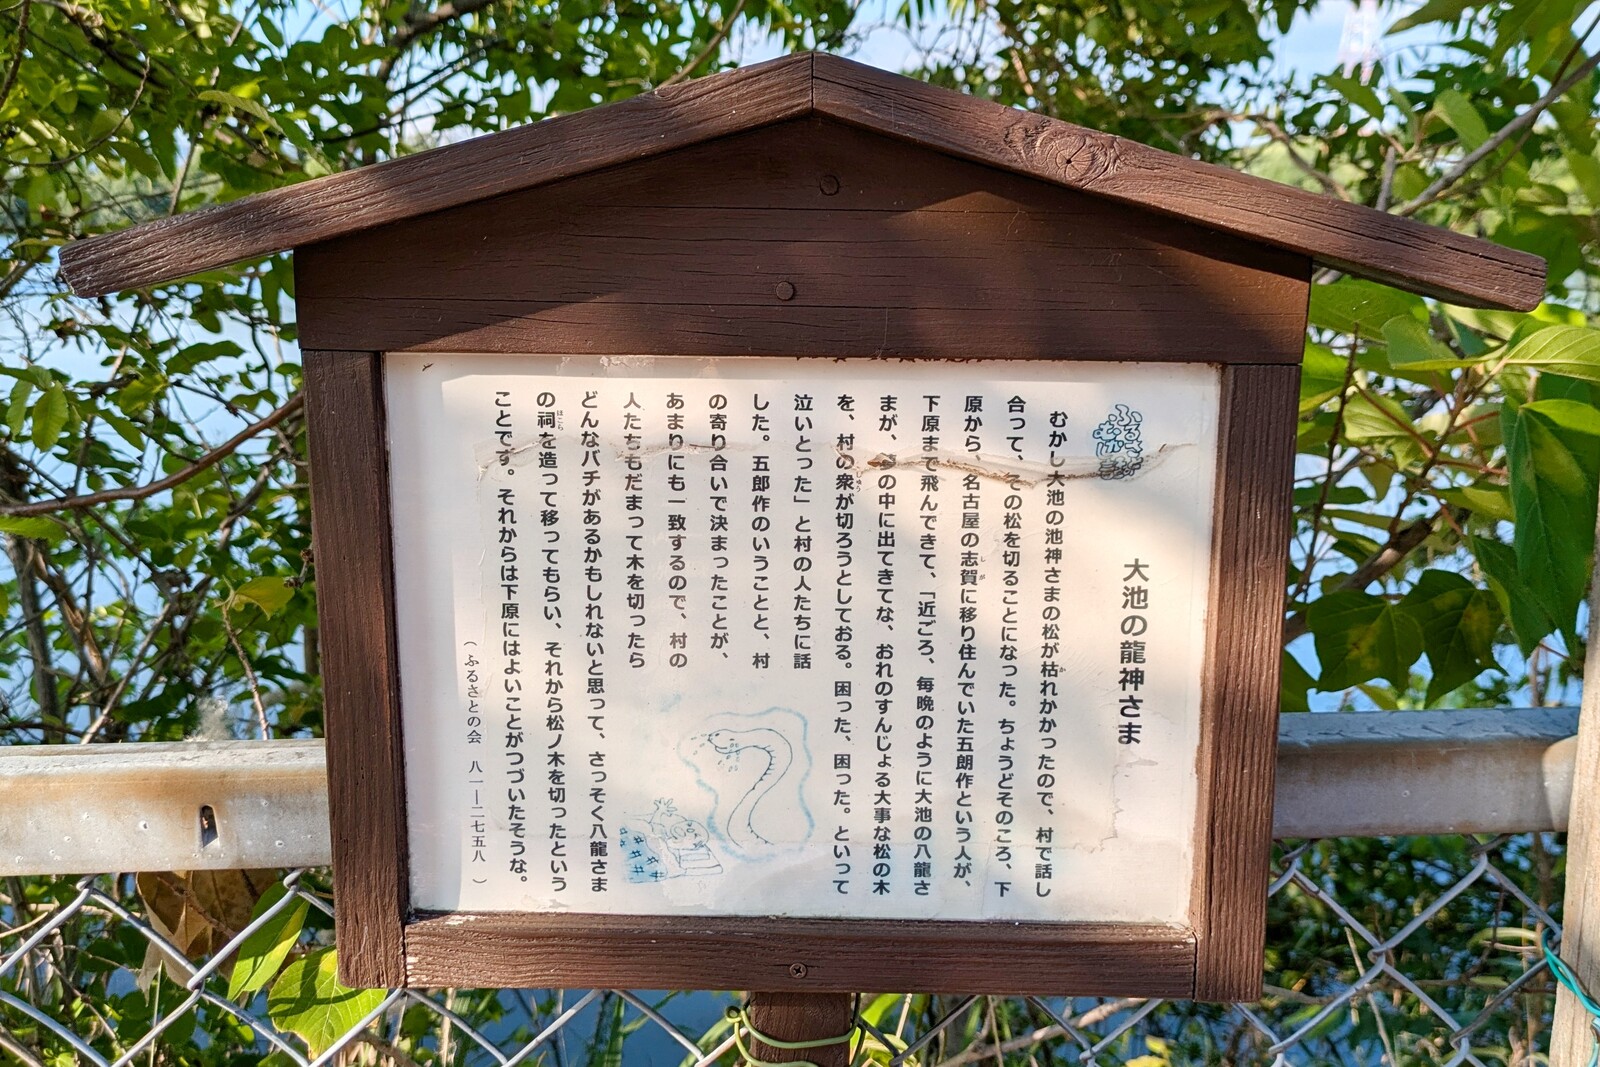 ふるさと
むかし話
大池の龍神さま
むかし大池の池神さまの松が枯れかかったので、村で話し
合って、その松を切ることになった。ちょうどそのころ、下
原から、名古屋の志賀に移り住んでいた五朗作という人が、
下原まで飛んできて、「近ごろ、毎晩のように大池の八龍さ
まが、の中に出てきてな、おれのすんじょる大事な松の木
を、村の衆が切ろうとしておる。困った、困った。といって
泣いとった」と村の人たちに話
した。五郎作のいうことと、村
の寄り合いで決まったことが、
あまりにも一致するので、村の
人たちもだまって木を切ったら
どんなバチがあるかもしれないと思って、さっそく八龍さま
の祠を造って移ってもらい、それから松ノ木を切ったという
ことです。それからは下原にはよいことがつづいたそうな。
(ふるさとの会 八一―二七五八)